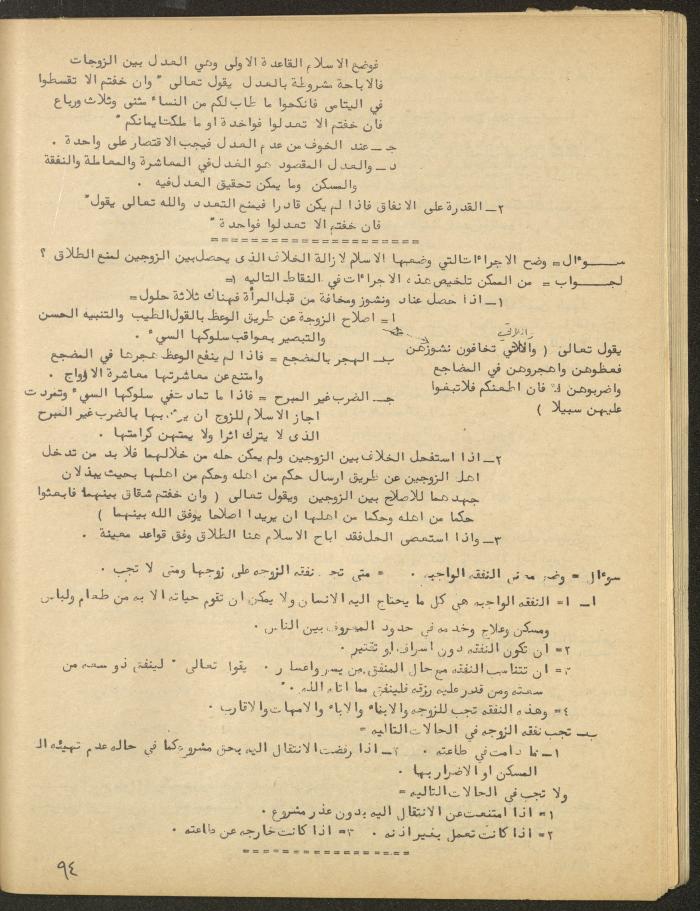 فوضع الاسلام القاعدة الاولى وهي العدل بين الزوجات
فالاباحة مشروطة بالعدل يقول تعالى " وان خفتم الا تقسطوا
في اليتامى فانكحوا ما طاب لكم من النساء مثنى وثلاث ورباع
فان خفتم الا تعدلوا فواحدة او ما ملكت ايمانكم "
جـ ـ عند الخوف من عدم العدل فيجب الاقتصار على واحدة .
د ـ والعدل المقصود هو العدل في المعاشرة والمعاملة والنفقة
والمسكن وما يمكن تحقيق العدل فيه .
٢ـ القدرة على الانفاق فاذا لم يكن قادرا فيمنع التعدد والله تعالى يقول"
فان خفتم الا تعدلوا فواحدة "
====================
ســـؤال= وضح الاجراءات التي وضعها الاسلام لازالة الخلاف الذى يحصل بين الزوجين لمنع الطلاق ؟
لجــواب = من الممكن تلخيص هذه الاجراءات في النقاط التاليه :=
١ـ اذا حصل عناد ونشوز ومخافة من قبل المرأة فهناك ثلاثة حلول=
ا= اصلاح الزوجة عن طريق الوعظ بالقول الطيب والتنبيه الحسن
والتبصير بعواقب سلوكها السيء .
يقول تعالى ( واللاتي تخافون نشوزهن
فعظوهن واهجروهن في المضاجع
واضربوهن فان اطعنكم فلا تبغوا
عليهن سبيلا )
بـ الهجر بالمضجع = فاذا لم ينفع الوعظ هجرها في المضجع
وامتنع عن معاشرتها معاشرة الازواج .
جـ ـ الضرب غير المبرح = فاذا ما تمادت في سلوكها السيء وتمردت
اجاز الاسلام للزوج ان بها بالضرب غير المبرح
الذى لا يترك اثرا ولا يمتهن كرامتها .
٢ـ اذا استفحل الخلاف بين الزوجين ولم يمكن حله من خلالهما فلا بد من تدخل
اهل الزوجين عن طريق ارسال حكم من اهله وحكم من اهلها بحيث يبذلان
جهدهما للاصلاح بين الزوجين ويقول تعالى ( وان خفتم شقاق بينهما فابعثوا
حكما من اهله وحكما من اهلها ان يريدا اصلاحا يوفق الله بينهما )
٣ـ واذا استعصى الحل فقد اباح الاسلام هنا الطلاق وفق قواعد معينة .
سؤال = وضح معنى النفقه الواجبه . = متى تجب نفقه الزوجه على زوجها ومتى لا تجب .
ا ـ ١= النفقه الواجبه هي كل ما يحتاج اليه الانسان ولا يمكن ان تقوم حياته الا به من طعام ولباس
ومسكن وعلاج وخدمه في حدود المعروف بين الناس .
٢= ان تكون النفقه دون اسراف او تقتير .
٣= ان تتناسب النفقه مع حال المنفق من يسر واعسار . يقول تعالى " لينفق ذو سعه من
سعته ومن قدر عليه رزقه فلينفق مما اتاه الله . "
٤= وهذه النفقه تجب للزوجه والابناء والاباء والامهات والاقارب .
بـ تجب نفقه الزوجه في الحالات التاليه =
١ـ ما دامت في طاعته . ٢ـ اذا رفضت الانتقال اليه بحق مشروع كما في حاله عدم تهيئه الـ
المسكن او الاضرار بها .
ولا تجب في الحالات التاليه =
١= اذا امتنعت عن الانتقال اليه بدون عذر مشروع .
٢= اذا كانت تعمل بغير اذنه . ٣= اذا كانت خارجه عن طاعته .
================
٩٤